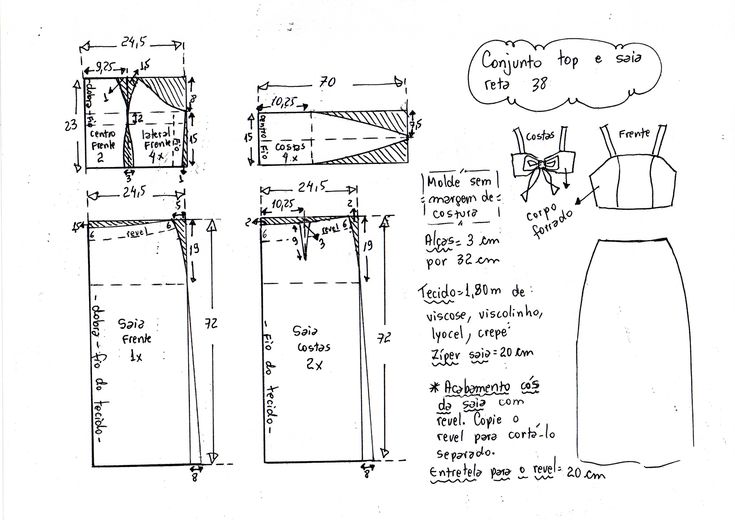 Conjunto top e saia
reta 38
24,5
9,25
1,5
1
8
23
dobra fio
2
centro
Frente
2
lateral
Frente
4x
Fio
15
3
1
70
10,25
7,5
15
centro
Fio
costas
4x
costas
Frente
corpo
forrado
Molde sem
margem de
costura
Alças = 3 cm
por 32 cm
Tecido = 1,80 m de:
viscose, viscolinho,
lyocel, crepe
Zíper saia = 20 cm
* Acabamento cós
da saia com
revel. Copie o
revel para cortá-lo
separado.
Entretela para o revel = 20 cm
24,5
5
1,5
6
revel
6
19
72
Saia
Frente
1x
- dobra - fio do tecido -
8
24,5
10,25
2
2
6
9
3
revel
6
19
72
Saia
costas
2x
- Fio do tecido -
8